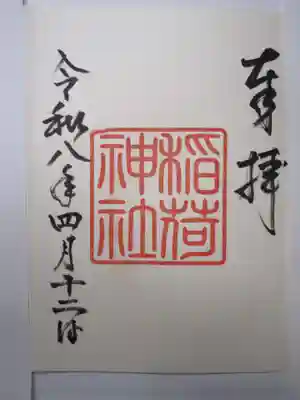 奉拝
稲荷
神社
令和八年四月十二日